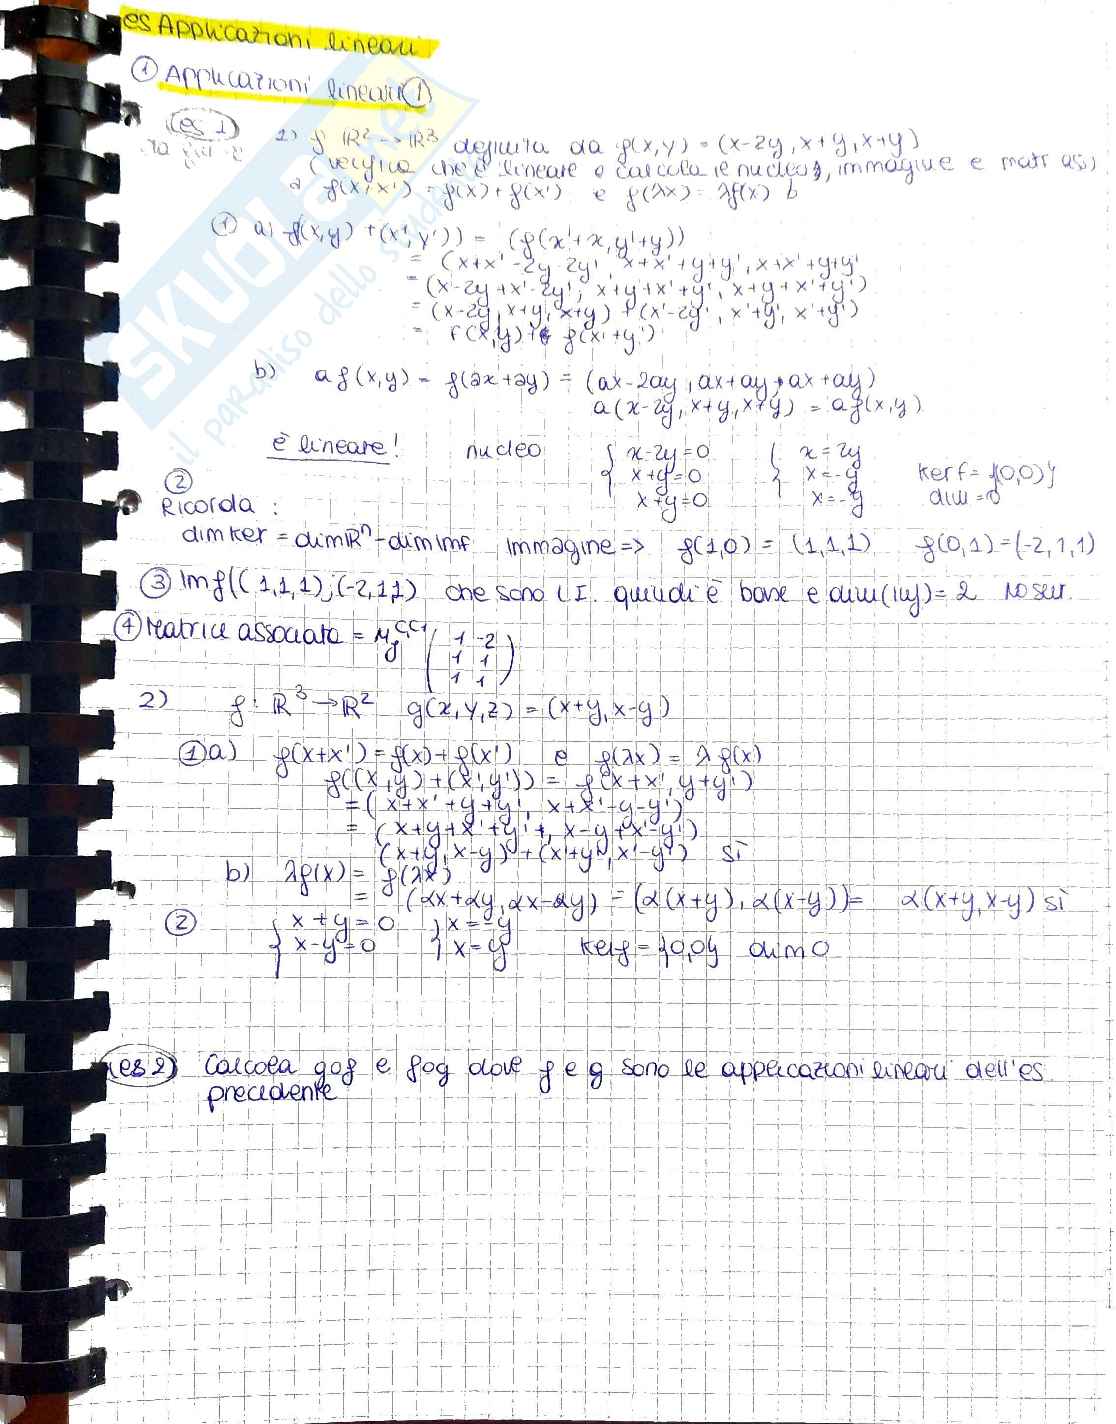 es Applicazioni lineari
① Applicazioni lineari ①
es 1
1) f ℝ² → ℝ³ definita da f(x,y) = (x-2y, x+y, x+y)
(verifica che è lineare e calcola nucleo, immagine e matr ass)
a f(x+x') = f(x) + f(x') e f(λx) = λf(x) b
① a) f(x,y) + (x',y')) = (f(x'+x, y'+y))
= (x+x'-2y-2y', x+x'+y+y', x+x'+y+y'
= (x-2y+x'-2y', x+y+x'+y', x+y+x'+y')
= (x-2y, x+y, x+y) + (x'-2y', x'+y', x'+y')
= f(x,y) + f(x'+y')
b) a f(x,y) = f(ax+ay) = (ax-2ay, ax+ay, ax+ay)
a(x-2y, x+y, x+y) = a f(x,y)
è lineare! nucleo { x-2y=0 { x=2y
x+y=0 x=-y Kerf= {(0,0)}
x+y=0 x=-y dim=0
②
Ricorda :
dimKer = dimℝⁿ - dimImf immagine => f(1,0) = (1,1,1) f(0,1)=(-2,1,1)
③ Imf((1,1,1);(-2,1,1) che sono L I. quindi è base e dim(Imf)= 2 no sur.
④ Matrice associata = M_f^{C,C1} ( 1 -2
1 1
1 1 )
2) f: ℝ³ → ℝ² g(x,y,z) = (x+y, x-y)
① a) f(x+x') = f(x) + f(x') e f(λx) = λ f(x)
f((x,y) + (x',y')) = f(x+x', y+y')
= (x+x'+y+y', x+x'-y-y')
= (x+y+x'+y'+, x-y+x'-y')
(x+y, x-y) + (x'+y', x'-y') sì
b) λf(x) = f(λx)
= (αx+αy, αx-αy) = (α(x+y), α(x-y)) = α(x+y, x-y) sì
② { x+y=0 { x=-y
x-y=0 x=y Kerf = {0,0} dim 0
es 2) Calcola gof e fog dove f e g sono le applicazioni lineari dell'es
precedente
SKUOLA.net
il paradiso dello studente